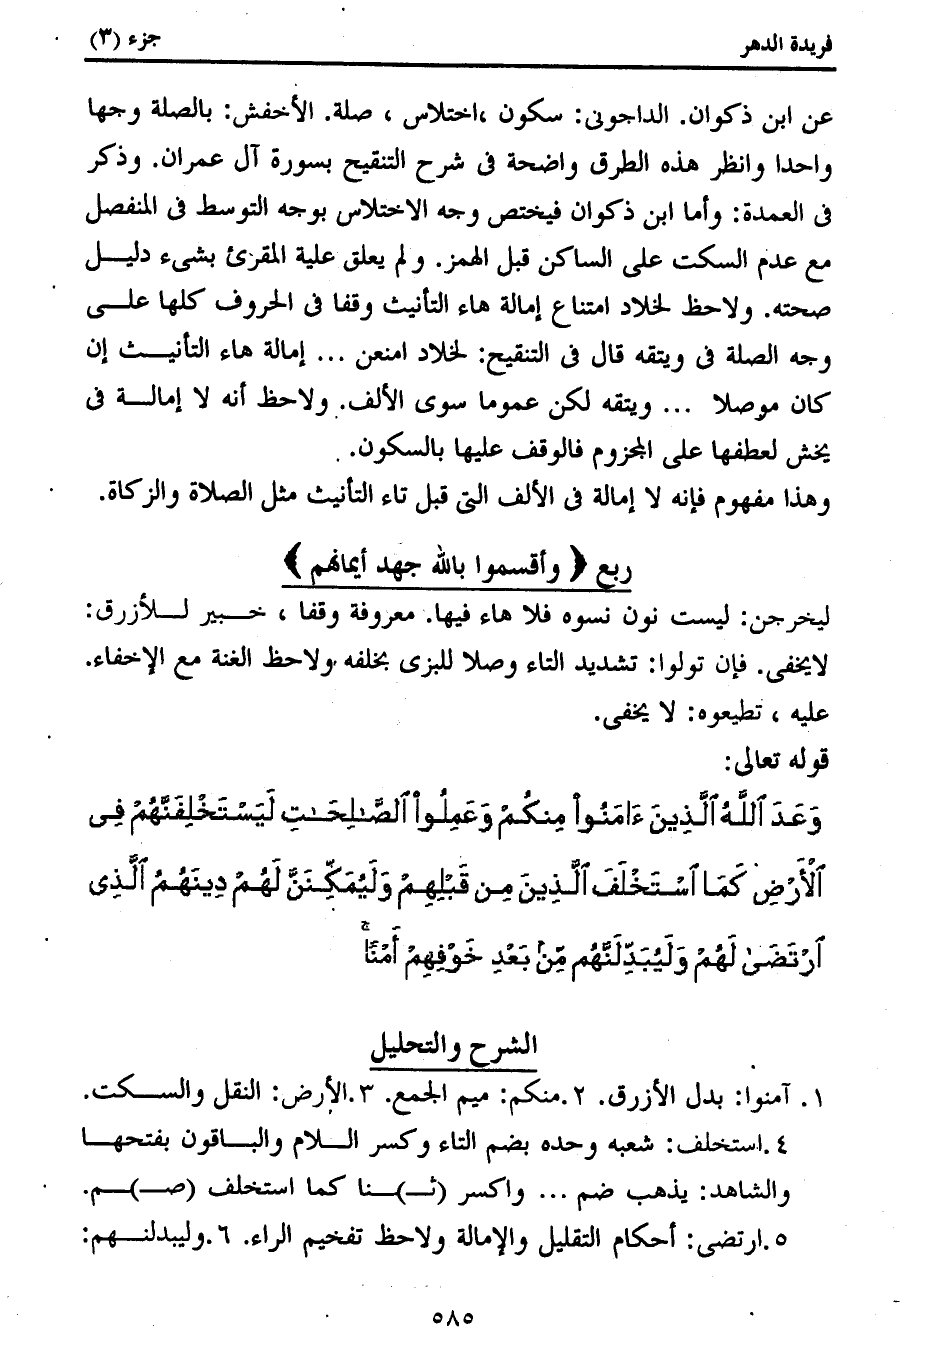 فريدة الدهر
جزء (٣)
عن ابن ذكوان. الداجونى: سكون ،اختلاس ، صلة. الأخفش: بالصلة وجها
واحدا وانظر هذه الطرق واضحة فى شرح التنقيح بسورة آل عمران. وذكر
فى العمدة: وأما ابن ذكوان فيختص وجه الاختلاس بوجه التوسط فى المنفصل
مع عدم السكت على الساكن قبل الهمز. ولم يعلق علية المقرئ بشىء دليل
صحته. ولاحظ لخلاد امتناع إمالة هاء التأنيث وقفا فى الحروف كلها على
وجه الصلة فى ويتقه قال فى التنقيح: لخلاد امنعن ... إمالة هاء التأنيث إن
كان موصلا ... ويتقه لكن عموما سوى الألف. ولاحظ أنه لا إمالة فى
يخش لعطفها على المجزوم فالوقف عليها بالسكون.
وهذا مفهوم فإنه لا إمالة فى الألف التى قبل تاء التأنيث مثل الصلاة والزكاة.
ربع ﴿ وأقسموا بالله جهد أيمانهم ﴾
ليخرجن: ليست نون نسوه فلا هاء فيها. معروفة وقفا ، خبير للأزرق:
لايخفى. فإن تولوا: تشديد التاء وصلا للبزى بخلفه ولاحظ الغنة مع الإخفاء.
عليه ، تطيعوه: لا يخفى.
قوله تعالى:
وَعَدَ ٱللَّهُ ٱلَّذِينَ ءَامَنُوا۟ مِنكُمْ وَعَمِلُوا۟ ٱلصَّـٰلِحَـٰتِ لَيَسْتَخْلِفَنَّهُمْ فِى
ٱلْأَرْضِ كَمَا ٱسْتَخْلَفَ ٱلَّذِينَ مِن قَبْلِهِمْ وَلَيُمَكِّنَنَّ لَهُمْ دِينَهُمُ ٱلَّذِى
ٱرْتَضَىٰ لَهُمْ وَلَيُبَدِّلَنَّهُم مِّنۢ بَعْدِ خَوْفِهِمْ أَمْنًا ۚ
الشرح والتحليل
١. آمنوا: بدل الأزرق. ٢.منكم: ميم الجمع. ٣.الأرض: النقل والسكت.
٤.استخلف: شعبه وحده بضم التاء وكسر اللام والباقون بفتحها
والشاهد: يذهب ضم ... واكسر (ثـ)ـنا كما استخلف (صـ)ـم.
٥.ارتضى: أحكام التقليل والإمالة ولاحظ تفخيم الراء. ٦.وليبدلنهم:
٥٨٥